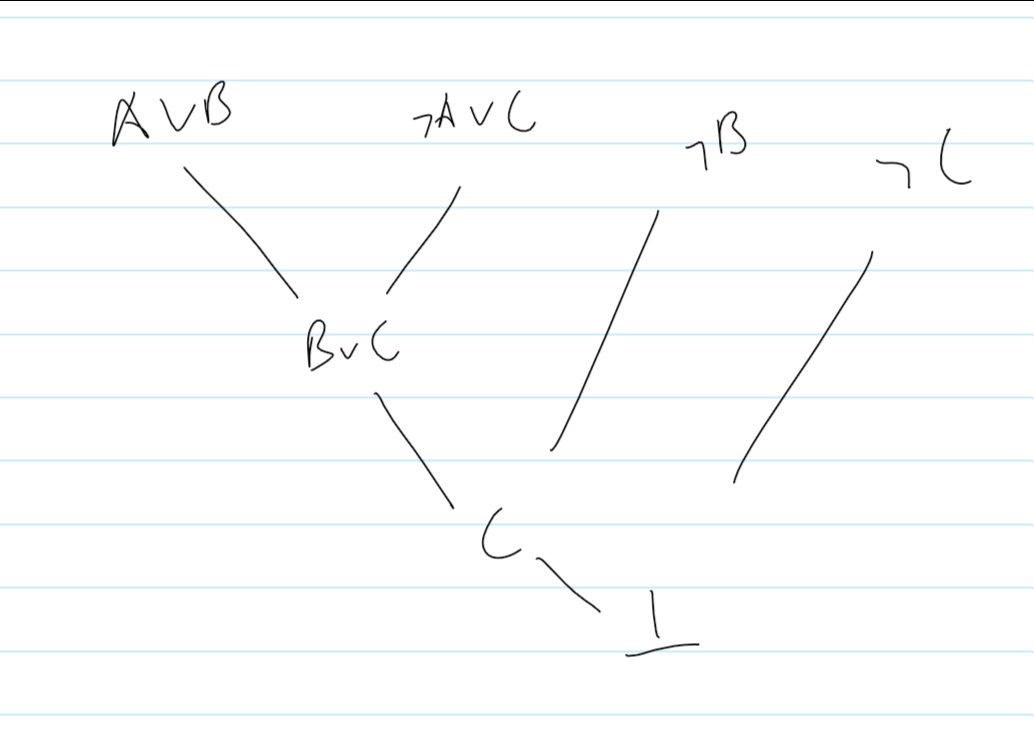 A∨B ¬A∨C ¬B ¬C
B∨C
C
⊥